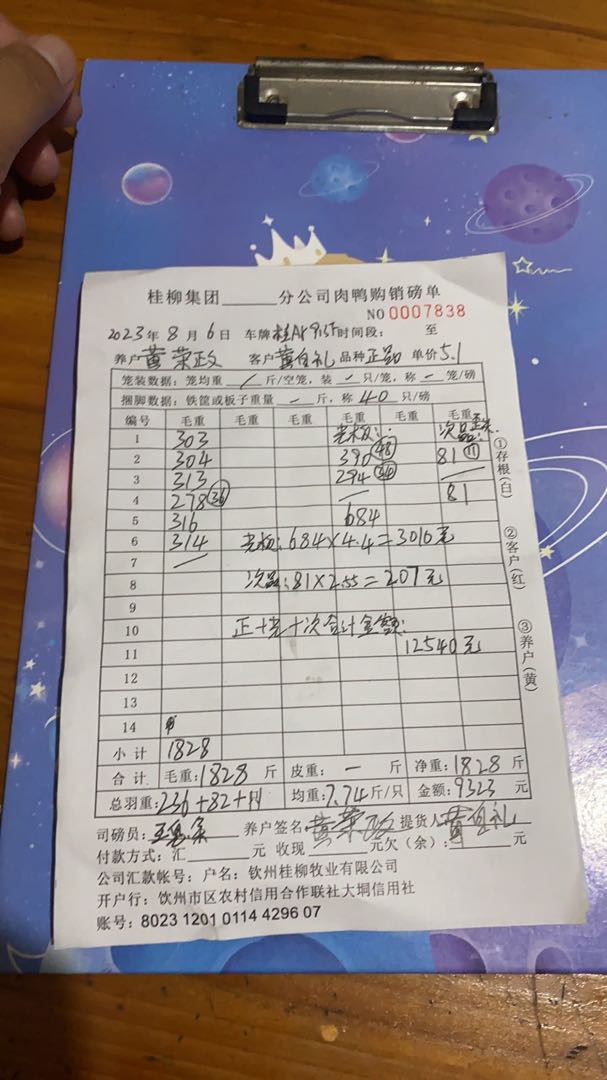 桂柳集团______分公司肉鸭购销磅单
NO 0007838
2023年 8月 6日 车牌 桂A 时间段: 至
养户 黄荣政 客户 黄自礼 品种 正品 单价 5.1
笼装数据: 笼均重 / 斤/空笼, 装 - 只/笼, 称 - 笼/磅
捆脚数据: 铁筐或板子重量 - 斤, 称 40 只/磅
编号 毛重 毛重 毛重 毛重 毛重 毛重
1 303
2 304 390 (48) 81 (11)
3 313 294 (34)
4 278 (36) 81
5 316 684
6 314 684×4.4=3010元
7
8 次品:81×2.55=207元
9
10 正+光+次合计金额:
11 12540元
12
13
14
小计 1828
合计 毛重:1828 斤 皮重: - 斤 净重:1828 斤
总羽重:236+82+11 均重:7.74斤/只 金额:9323 元
司磅员: 养户签名: 黄荣政 提货人 黄自礼
付款方式:汇______元 收现______元欠(余):______元
公司汇款帐号: 户名: 钦州桂柳牧业有限公司
开户行: 钦州市区农村信用合作联社大垌信用社
账号: 8023 1201 0114 4296 07
①存根(白)
②客户(红)
③养户(黄)